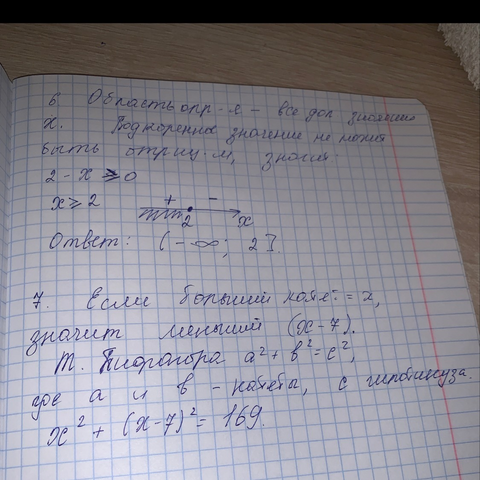 6 Область опр-я - все доп значения
х. Подкоренное значение не может
быть отриц-м, значит:
2 - х ⩾ 0
х ⩾ 2 + - 2 х
Ответ: (-∞; 2]
7. Если больший катет = х,
значит меньший (х-7).
Т. Пифагора a² + b² = c²,
где a и b - катеты, c гипотинуза.
х² + (х-7)² = 169.